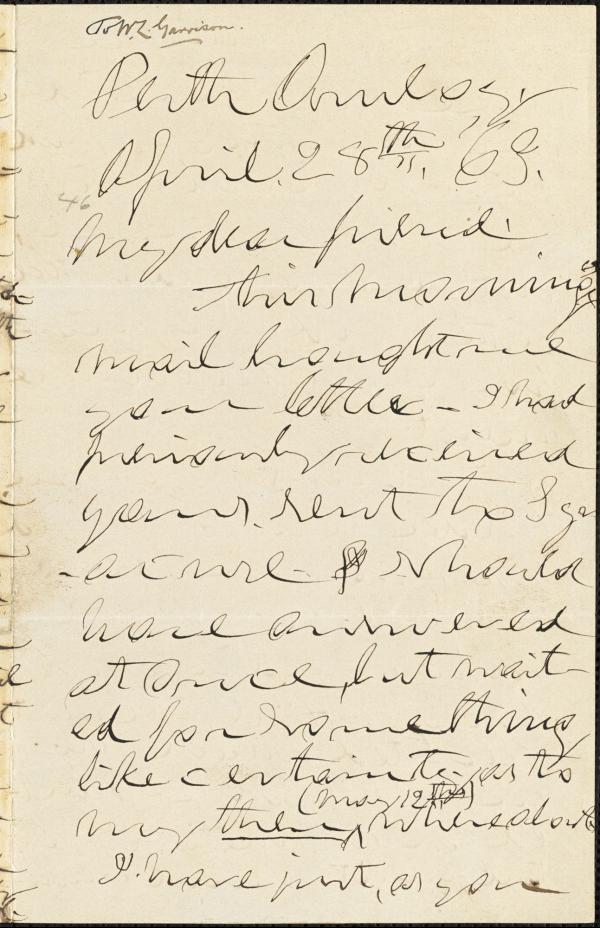 To W. L. Garrison.
Perth Amboy.
April. 28th, '69.
46
My dear friend.
This morning's
mail brought me
your letter - I had
previously received
yours, sent to Syr
-acuse - & should
have answered
at once, but wait-
ed for something
like certainty, as to
(May 12th)
my then, whereabouts
I have just, as you